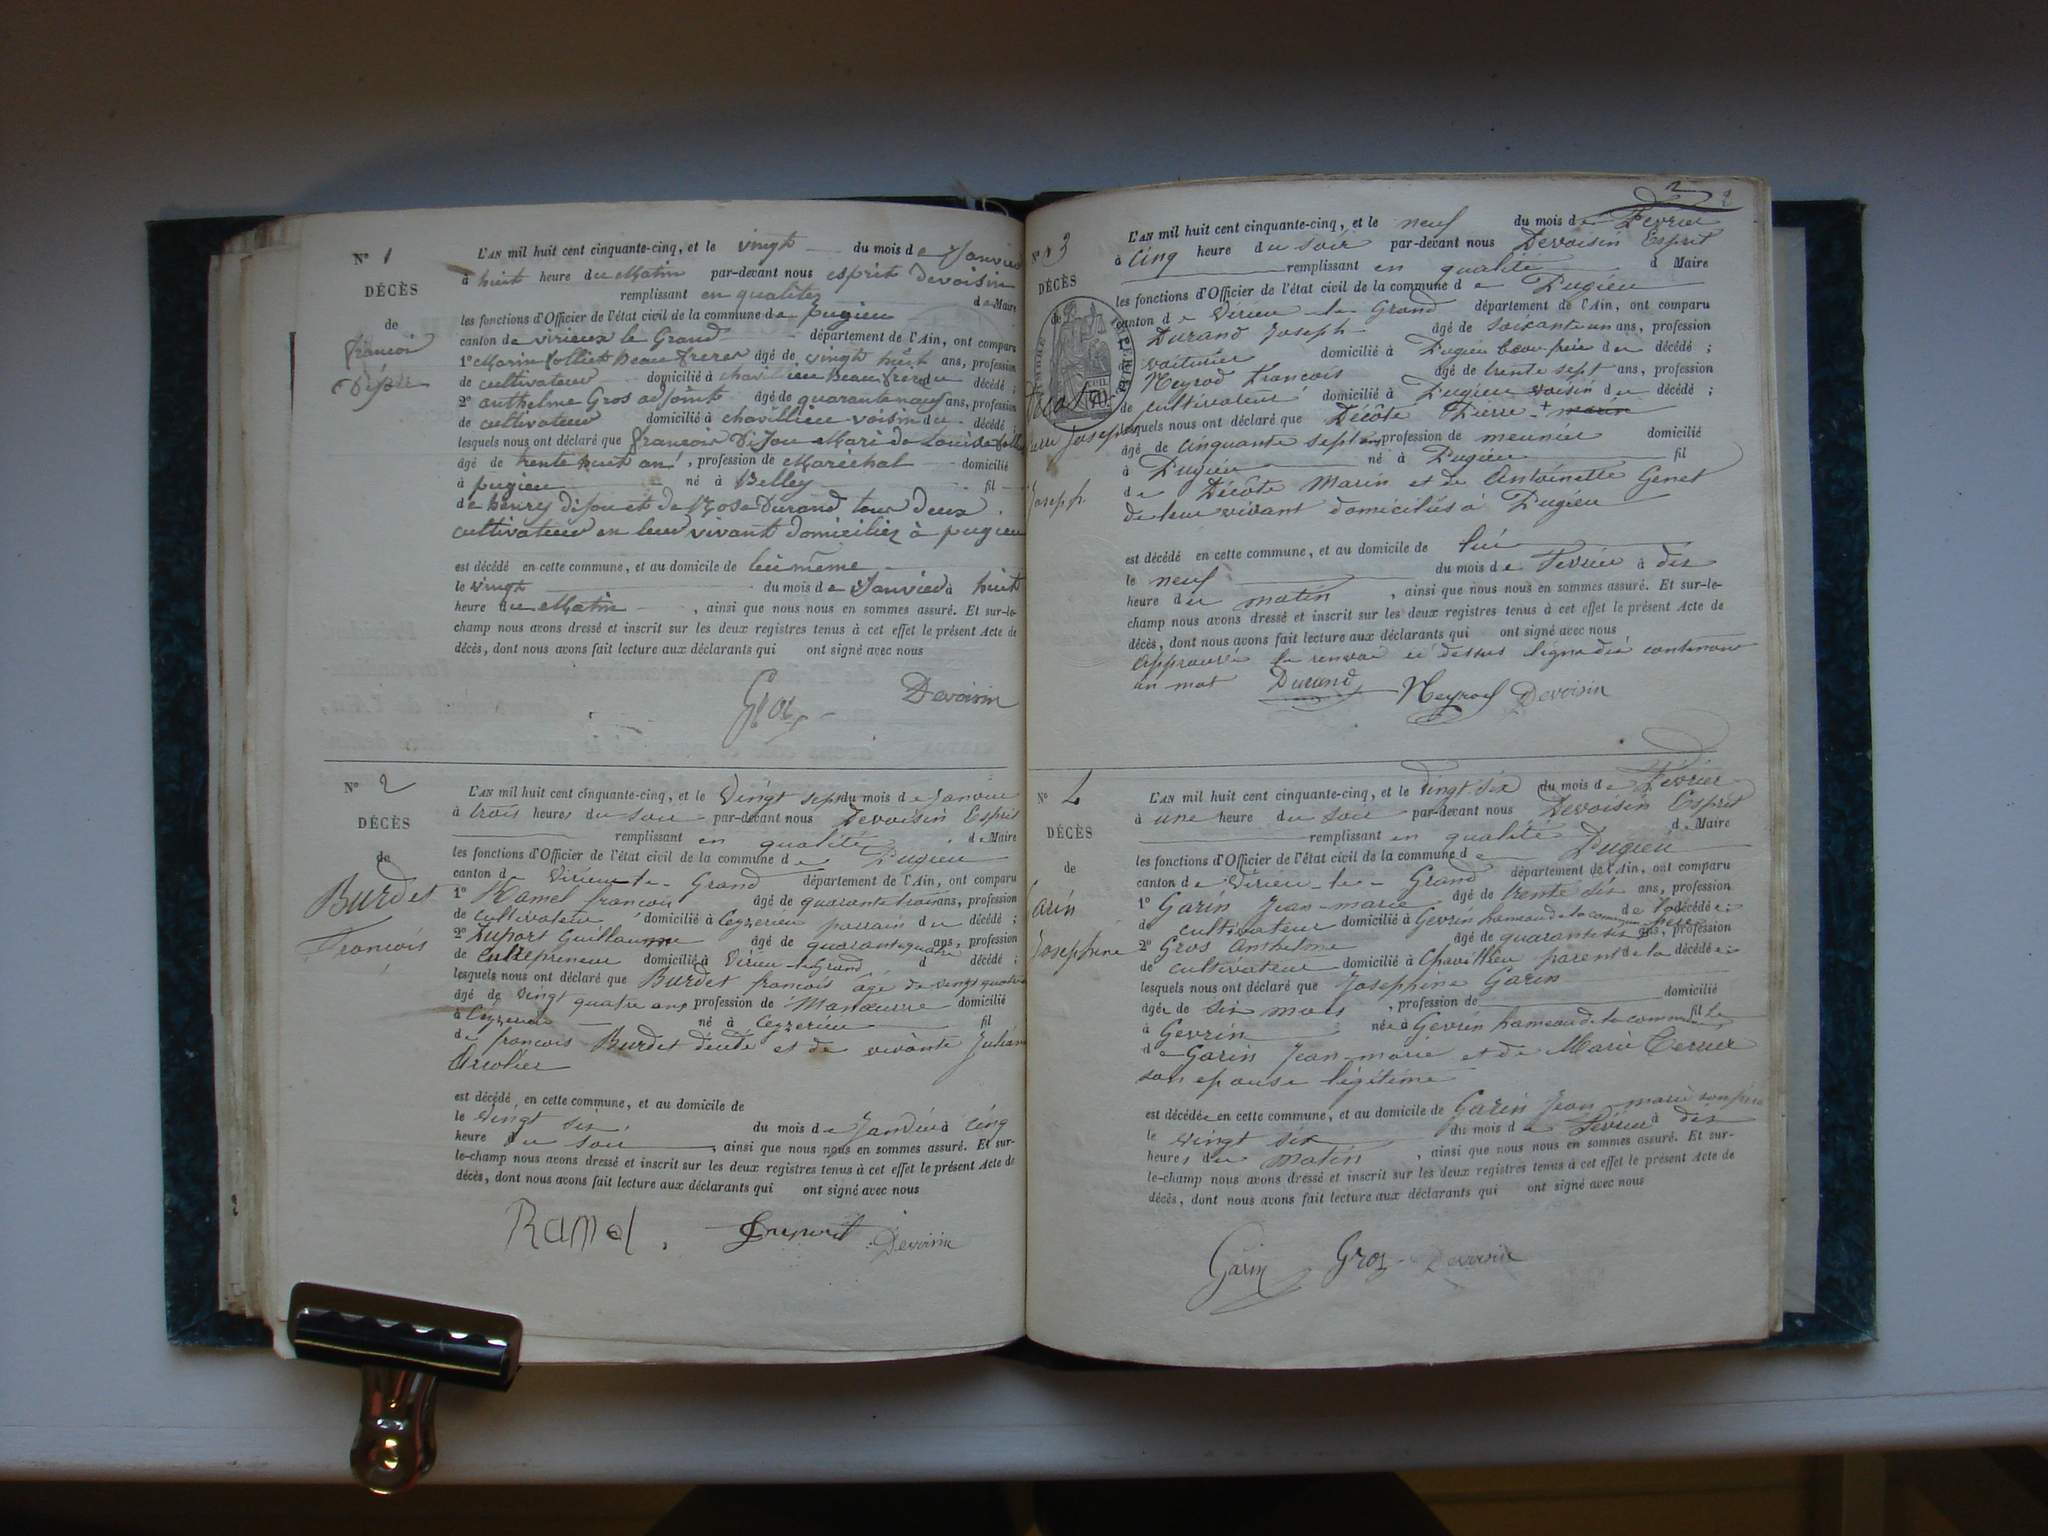 N° 1
DÉCÈS
de
françois
Dijou
L'AN mil huit cent cinquante-cinq, et le vingt du mois de Janvier
à huit heure du Matin par-devant nous esprit Devoisin
remplissant en qualitez de Maire
les fonctions d'Officier de l'état civil de la commune de pugieu
canton de virieux le Grand département de l'Ain, ont comparu
1° Marin Colliet Beau frerer âgé de vingt huit ans, profession
de cultivateur domicilié à chavillieu Beau frère du décédé ;
2° anthelme Gros adjoint âgé de quarante neuf ans, profession
de cultivateur domicilié à chavillieu voisin du décédé ;
lesquels nous ont déclaré que françois Dijou Mari de Louise
âgé de trente huit ans, profession de Maréchal domicilié
à pugieu né à Belley fil
de henry dijou et de Rose Durand tous deux
cultivateur en leur vivant domiciliez à pugieu
est décédé en cette commune, et au domicile de lui même
le vingt du mois de Janvier à huit
heure du Matin, ainsi que nous nous en sommes assuré. Et sur-le-
champ nous avons dressé et inscrit sur les deux registres tenus à cet effet le présent Acte de
décès, dont nous avons fait lecture aux déclarants qui ont signé avec nous
Gros Devoisin
N° 2
DÉCÈS
de
Burdet
François
L'AN mil huit cent cinquante-cinq, et le Vingt sept du mois de Janvier
à trois heures du soir par-devant nous Devoisin Esprit
remplissant en qualité de Maire
les fonctions d'Officier de l'état civil de la commune de Pugieu
canton de Virieu-le-Grand département de l'Ain, ont comparu
1° Ramel françois âgé de quarante trois ans, profession
de cultivateur domicilié à Ceyzerieu parrain du décédé ;
2° Duport Guillaume âgé de quarante quatre ans, profession
de Entrepreneur domicilié à Virieu-le-Grand d décédé ;
lesquels nous ont déclaré que Burdet françois âgé de vingt quatre
âgé de vingt quatre ans profession de Manoeuvre domicilié
à Ceyzerieu né à Ceyzerieu fil
de françois Burdet décédé et de vivante
est décédé en cette commune, et au domicile de
le vingt six du mois de Janvier à cinq
heure du soir, ainsi que nous nous en sommes assuré. Et sur-
le-champ nous avons dressé et inscrit sur les deux registres tenus à cet effet le présent Acte de
décès, dont nous avons fait lecture aux déclarants qui ont signé avec nous
Ramel Duport Devoisin
2
2
N° 3
DÉCÈS
de
Joseph
L'AN mil huit cent cinquante-cinq, et le neuf du mois de Février
à cinq heure du soir par-devant nous Devoisin Esprit
remplissant en qualité d Maire
les fonctions d'Officier de l'état civil de la commune de Pugieu
canton de Virieu-le-Grand département de l'Ain, ont comparu
Durand Joseph âgé de soixante un ans, profession
de voiturier domicilié à Pugieu beau frère du décédé ;
Neyrod francois âgé de trente sept ans, profession
de cultivateur domicilié à Pugieu voisin du décédé ;
lesquels nous ont déclaré que Décôte Pierre + marin
âgé de cinquante sept ans, profession de meunier domicilié
à Pugieu né à Pugieu fil
de Décôte Marin et de Antoinette Genet
de leur vivant domiciliés à Pugieu
est décédé en cette commune, et au domicile de lui
le neuf du mois de Fevrier à dix
heure du matin, ainsi que nous nous en sommes assuré. Et sur-le-
champ nous avons dressé et inscrit sur les deux registres tenus à cet effet le présent Acte de
décès, dont nous avons fait lecture aux déclarants qui ont signé avec nous
Approuvé le renvoi ci dessus contenant
un mot Durand Neyrod Devoisin
N° 4
DÉCÈS
de
Garin
Josephine
L'AN mil huit cent cinquante-cinq, et le vingt six du mois de Février
à une heure du soir par-devant nous Devoisin Esprit
remplissant en qualité de Maire
les fonctions d'Officier de l'état civil de la commune de Pugieu
canton de Virieu-le-Grand département de l'Ain, ont comparu
1° Garin Jean-marie âgé de trente six ans, profession
de cultivateur domicilié à Gevrin hameau de la commune père de la décédée ;
2° Gros Anthelme âgé de quarante six ans, profession
de cultivateur domicilié à Chavillieu parent de la décédée ;
lesquels nous ont déclaré que Josephine Garin
âgée de six mois, profession de domicilié
à Gevrin née à Gevrin hameau de la commune fille
de Garin Jean-marie et de Marie Terrier
son epouse légitime
est décédée en cette commune, et au domicile de Garin Jean-marie son père
le vingt six du mois de Février à dix
heures du matin, ainsi que nous nous en sommes assuré. Et sur-
le-champ nous avons dressé et inscrit sur les deux registres tenus à cet effet le présent Acte de
décès, dont nous avons fait lecture aux déclarants qui ont signé avec nous
Garin Gros Devoisin